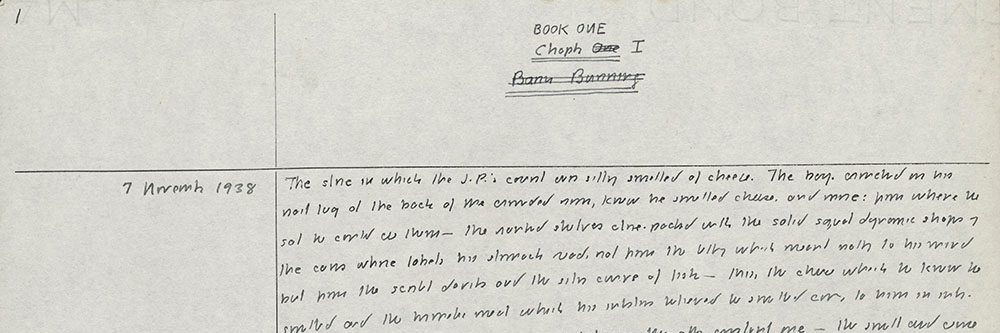 1
BOOK ONE
Chapt One I
Barn Burning
7 Novemb 1938
The store in which the J.P.'s court was sitting smelled of cheese. The boy, crouched on his
nail keg at the back of the crowded room, knew he smelled cheese, and more: from where he
sat he could see them — the ranked shelves close-packed with the solid squat dynamic shapes of
tin cans whose labels his stomach read, not from the lettering which meant nothing to his mind
but from the scarlet devils and the silver curve of fish — this, the cheese which he knew he
smelled and the hermetic meat which his intestines believed he smelled
the other constant one — the smell and sense